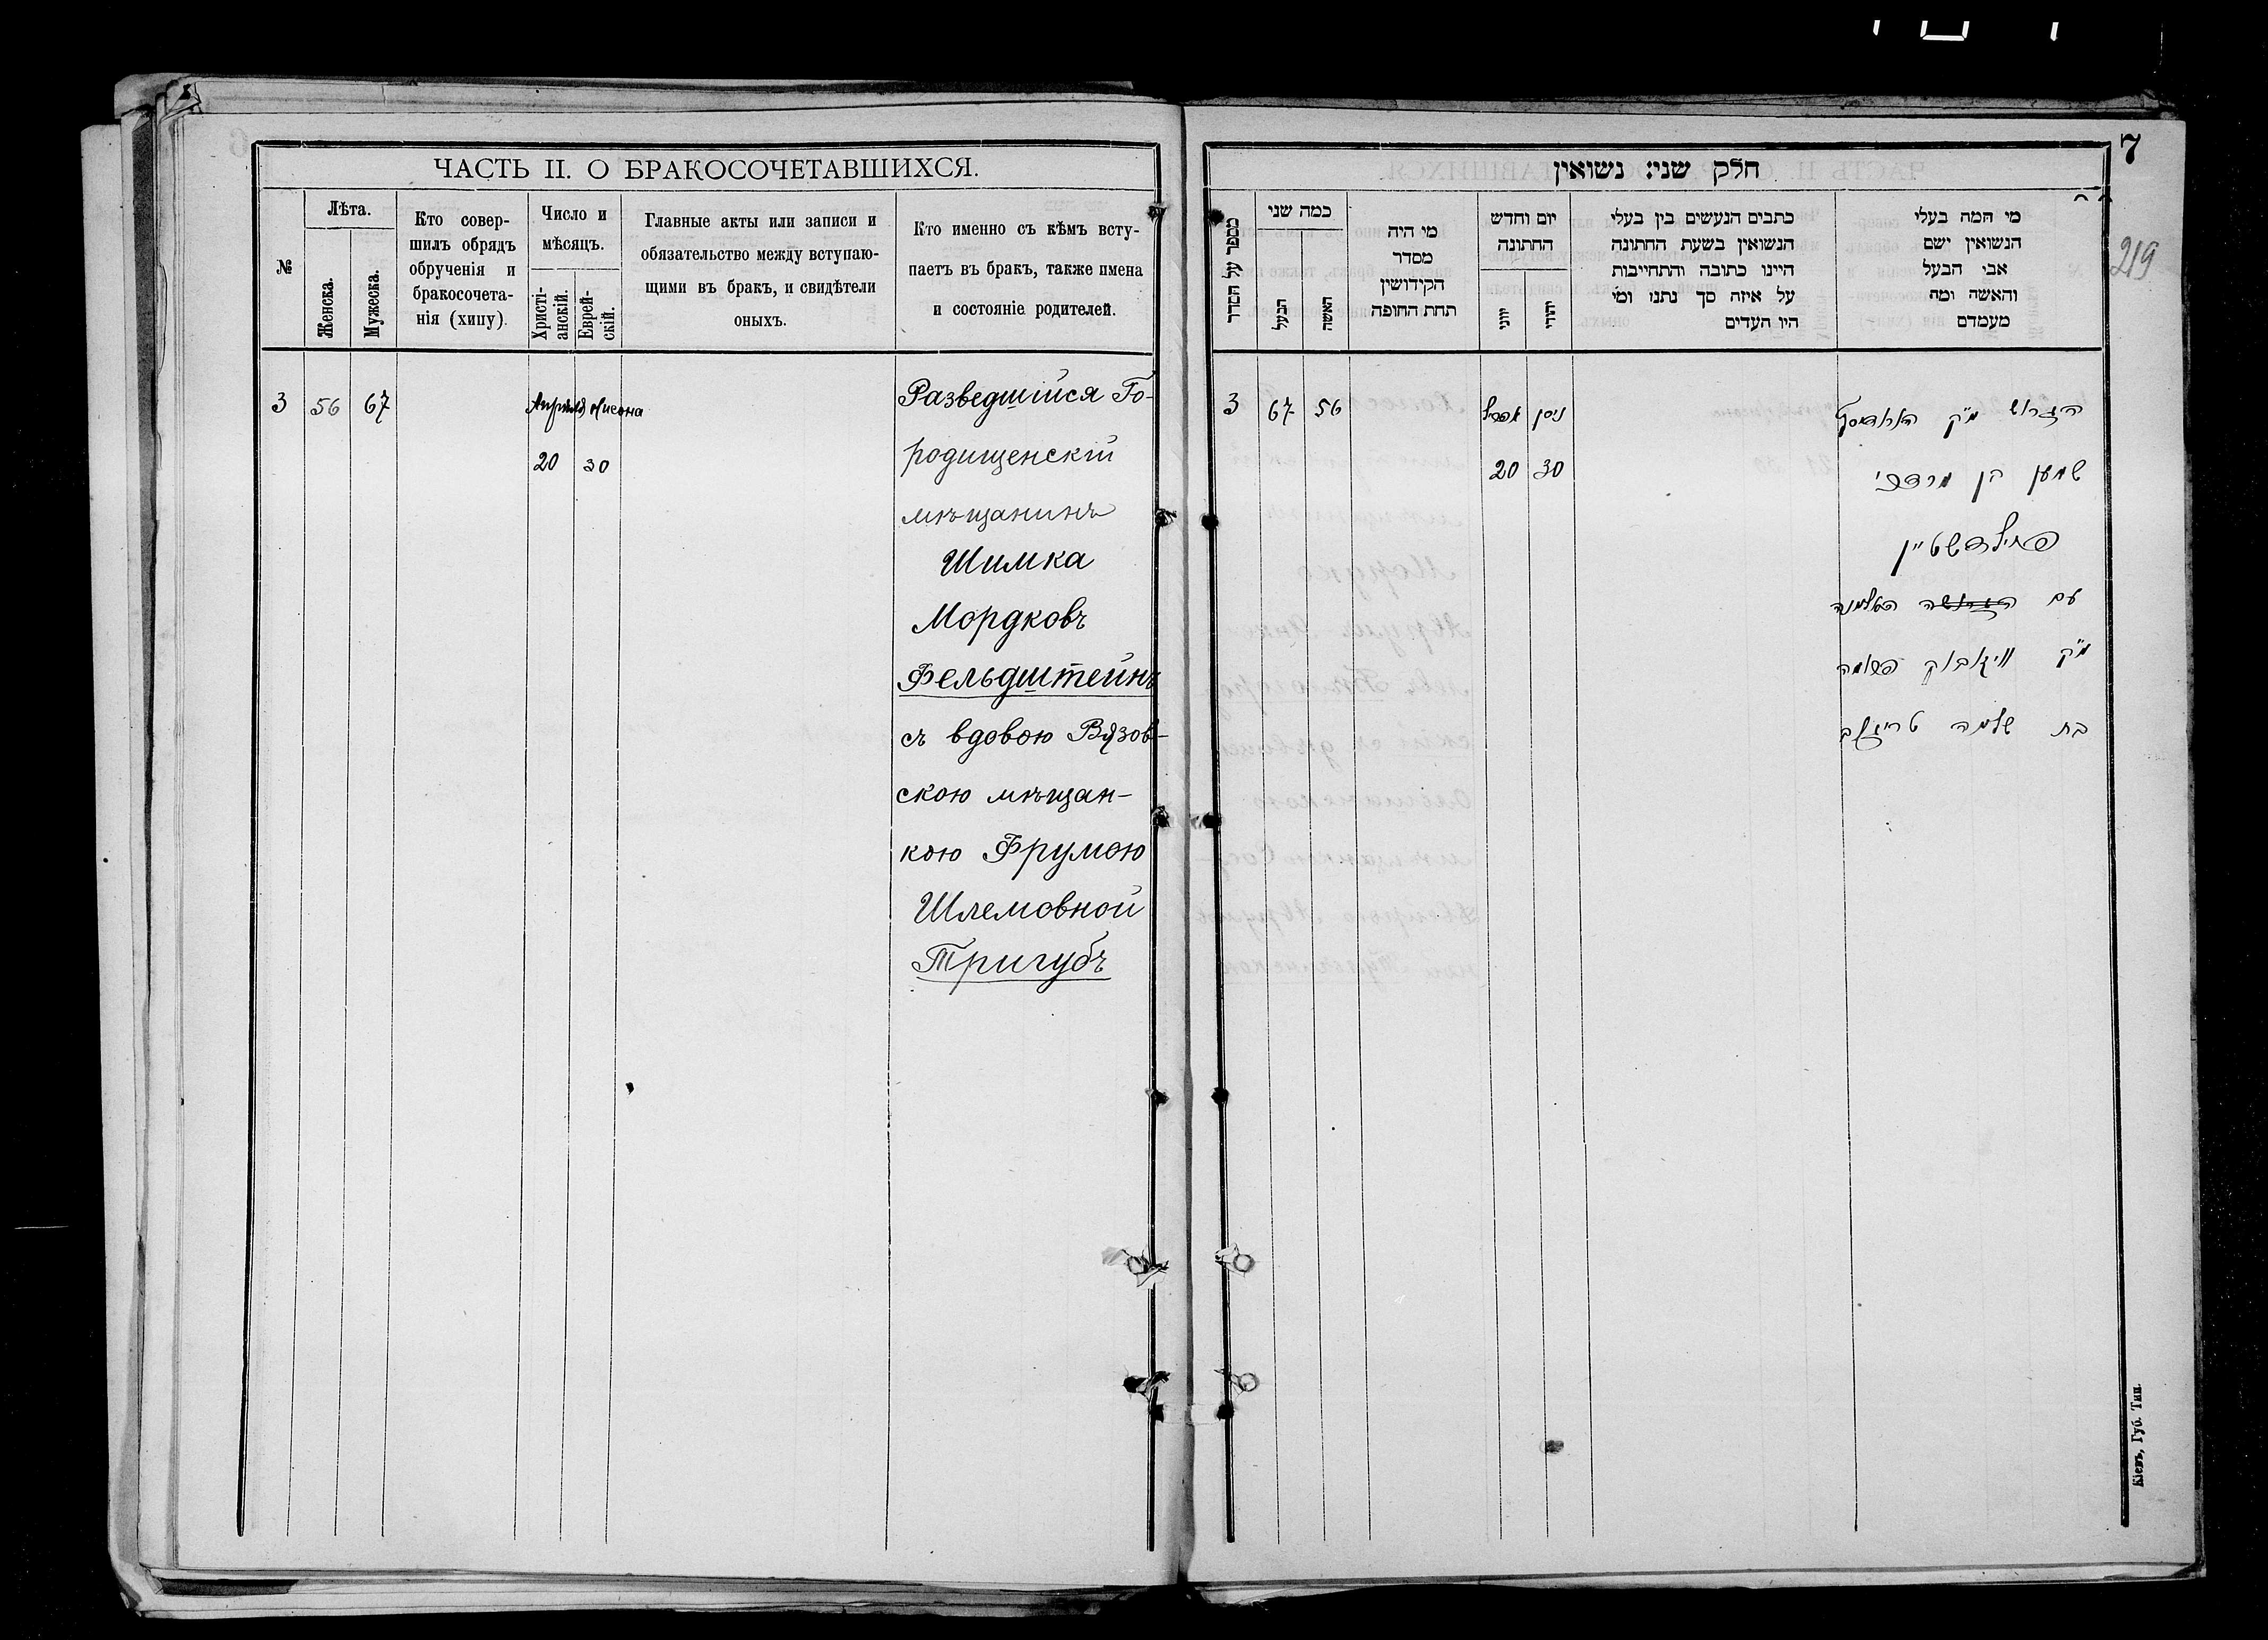 ЧАСТЬ II. О БРАКОСОЧЕТАВШИХСЯ.
№
Лѣта.
Женска.
Мужеска.
Кто совер-
шилъ обрядъ
обрученія и
бракосочета-
нія (хипу).
Число и
мѣсяцъ.
Христі-
анскій.
Еврей-
скій.
Главные акты или записи и
обязательство между вступаю-
щими въ бракъ, и свидѣтели
оныхъ.
Кто именно съ кѣмъ всту-
паетъ въ бракъ, также имена
и состояніе родителей.
3 56 67
Апрѣля Нисона
20 30
Разведшійся Го-
родищенскій
мѣщанинъ
Шимка
Мордковъ
Фельдштейнъ
съ вдовою Вязов-
скою мѣщан-
кою Фрумою
Шлемовной
Тригубъ
7
219
חלק שני: נשואין
מי המה בעלי
הנשואין ושם
אבי הבעל
והאשה ומה
מעמדם
כתבים הנעשים בין בעלי
הנשואין בשעת החתונה
היינו כתובה והתחייבות
על איזה סך נתנו ומי
היו העדים
יום וחדש
החתונה
יהודי
יוני
מי היה
מסדר
הקידושין
תחת החופה
כמה שני
האשה
הבעל
מספר על הסדר
3 67 56
אפריל ניסן
20 30
הגרוש מ"ק
שמעון בן מרדכי
פעלדשטיין
עם האלמנה
מ"ק פרומה
בת שלמה טריגוב
Кіевъ, Губ. Тип.